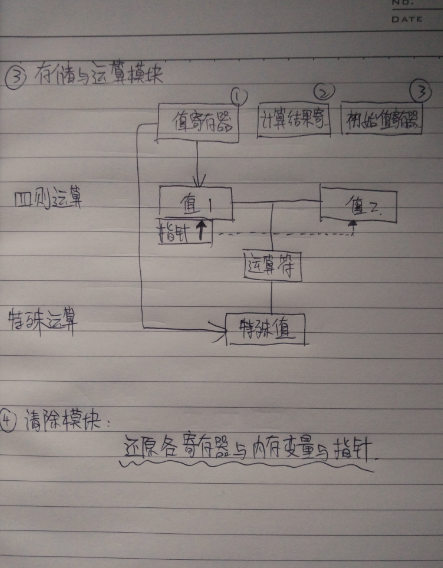 NO.
DATE
③ 存储与运算模块
① ② ③
值寄存器 计算结果寄 初始值寄存器
四则运算 值1 值2
指针
运算符
特殊运算 特殊值
④ 清除模块:
还原各寄存器与内存变量与指针.